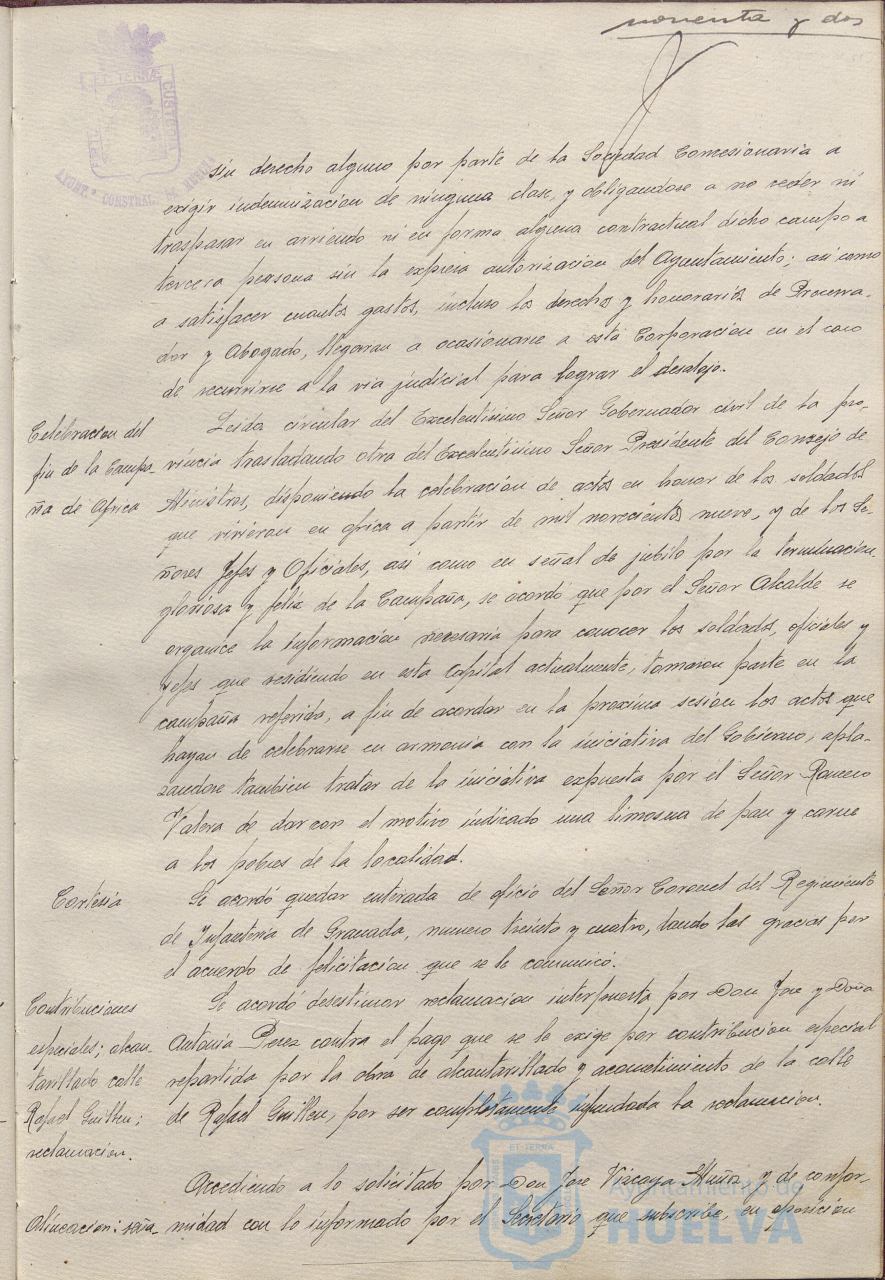 noventa y dos
PORTUS MARIS ET TERRÆ CUSTODIA
AYUNT.º CONSTNAL. DE HUELVA
sin derecho alguno por parte de la Sociedad Concesionaria a
exigir indemnizacion de ninguna clase, y obligandose a no ceder ni
traspasar en arriendo ni en forma alguna contractual dicho campo a
tercera persona sin la expresa autorizacion del Ayuntamiento; asi como
a satisfacer cuantos gastos, incluso los derechos y honorarios de Procura-
dor y Abogado, llegaran a ocasionarse a esta Corporacion en el caso
de recurrirse a la via judicial para lograr el desalojo.
Celebracion del
fin de la Campa
ña de Africa
Leida circular del Excelentisimo Señor Gobernador civil de la pro-
vincia trasladando otra del Excelentisimo Señor Presidente del Consejo de
Ministros, disponiendo la celebracion de actos en honor de los soldados
que vivieran en africa a partir de mil novecientos nueve, y de los Se-
ñores Jefes y Oficiales, asi como en señal de jubilo por la terminacion
gloriosa y feliz de la Campaña, se acordó que por el Señor Alcalde se
organice la informacion necesaria para conocer los soldados, oficiales y
jefes que residiendo en esta Capital actualmente, tomaron parte en la
campaña referida, a fin de acordar en la proxima sesion los actos que
hayan de celebrarse en armonia con la iniciativa del Gobierno, apla-
zandose tambien tratar de la iniciativa expuesta por el Señor Romero
Valera de dar con el motivo indicado una limosna de pan y carne
a los pobres de la localidad.
Cortesia
Se acordó quedar enterada de oficio del Señor Coronel del Regimiento
de Infanteria de Granada, numero treinta y cuatro, dando las gracias por
el acuerdo de felicitacion que se le comunicó.
Contribuciones
especiales; alcan-
tarillado calle
Rafael Guillen;
reclamacion.
Se acordó desestimar reclamacion interpuesta por Don Jose y Doña
Antonia Perez contra el pago que se le exige por contribucion especial
repartida por la obra de alcantarillado y acometimiento de la calle
de Rafael Guillen, por ser completamente infundada la reclamacion.
Alineacion:
Accediendo a lo solicitado por Don Jose Vizcaya Muñiz y de confor-
midad con lo informado por el Secretario que subscribe, en oposicion
Ayuntamiento de
HUELVA